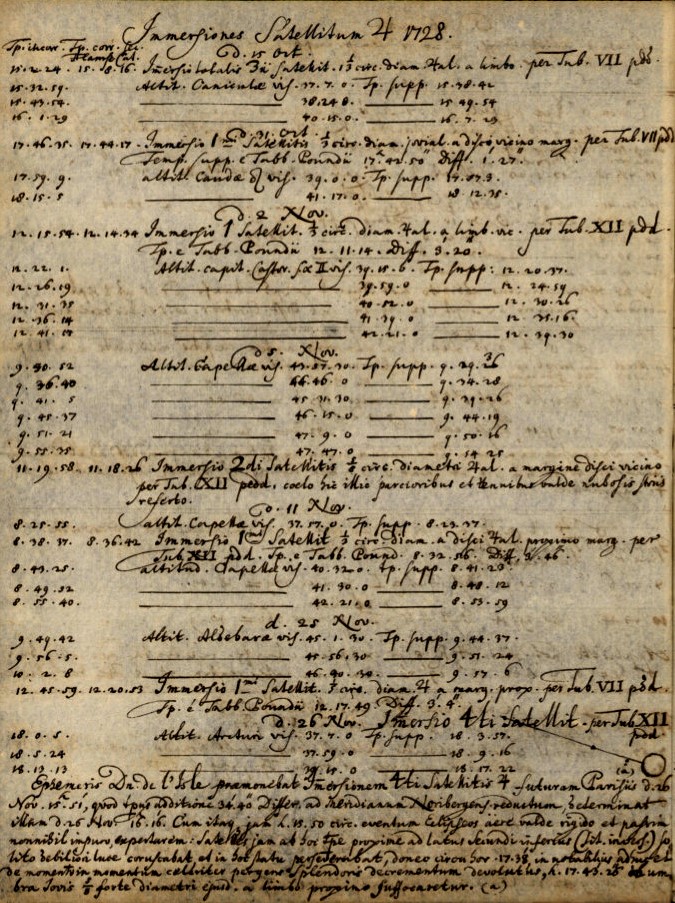 Immersiones Satellitum ♃ 1728.
Tp. incorr. Tp. corr.
d. 15 Oct.
15. 2. 24. 15. 8. 16. Immersio totalis 3ii Satellit. 1⅓ circ. diam. ♃al. a limbo. per Tub. VII pd.
15. 32. 59. Altit. Caniculæ vis. 37. 7. 0. Tp. supp. 15. 38. 42
15. 43. 54. 38. 24 0. 15. 49. 54
16. 1. 29 40. 15. 0. 16. 7. 23
Oct.
17. 46. 35. 17. 44. 17. Immersio 1mi Satellitis ⅓ circ. diam. jovial. a disci vicino marg. per Tub. VII pdd
Temp. supp. e Tabb. Poundii 17. 42. 50 Diff. 1. 27.
17. 59. 9. altit. Caudæ ♌ vis. 39. 0. 0. Tp. supp. 17. 57. 3.
18. 15. 5 41. 17. 0. 18. 12. 35.
d. 2 XIov.
12. 15. 54. 12. 14. 34 Immersio 1 Satellit. ⅓ circ. diam. ♃al. a limb. vic. per Tub. XII pdd.
Tp. e Tabb. Poundii 12. 11. 14. Diff. 3. 20.
12. 22. 1. Altit. capit. Castor. sec II vis. 39. 15. 6. Tp. supp: 12. 20. 37.
12. 26. 19 39. 59. 0 12. 24. 59
12. 31. 35 40. 52. 0 12. 30. 26
12. 36. 14 41. 39. 0 12. 35. 16
12. 41. 17 42. 21. 0 12. 39. 30
d 5. XIov.
9. 30. 52 Altit. Capellæ vis. 43. 57. 30. Tp. supp. 9. 29. 26
9. 36. 40 44. 46. 0 9. 34. 28
9. 41. 5 45. 31. 30 9. 39. 26
9. 45. 37 46. 15. 0 9. 44. 19
9. 51. 21 47. 9. 0 9. 50. 16
9. 55. 35 47. 47. 0 9. 54 25
11. 19. 58. 11. 18. 26 Immersio 2di Satellitis ⅓ circ. diametri ♃al. a margine disci vicino
per Tub. XII pedd. coelo hic illic parcioribus et tenuibus valde nubosis striis
referto.
D. 11 XIov.
8. 25. 55. altit. Capellæ vis. 37. 57. 0. Tp. supp 8. 23. 37.
8. 38. 37. 8. 36. 42 Immersio 1mi Satellit ⅓ circ. diam. a disci ♃al. proximo marg. per
Tub XII pdd. Tp. e Tabb. Pound. 8. 32. 56. Diff. 3. 46.
8. 43. 25. altitud. Capellæ vis. 40. 32. 0. tp. supp. 8. 41. 23
8. 49. 52 41. 30. 0 8. 48. 12
8. 55. 40. 42. 21. 0 8. 53. 59
d. 25 XIov.
9. 49. 42 Altit. Aldebaræ vis. 45. 1. 30. Tp. supp. 9. 44. 37.
9. 56. 5. 45. 56. 30 9. 51. 24
10. 2. 8 46. 40. 30. 9. 57. 6
12. 45. 59. 12. 20. 53 Immersio 1mi Satellit. circ. diam. ♃ a marg. prox. per Tub VII pdd.
Tp. e Tabb. Poundii 12. 17. 49. Diff. 3. 4.
D. 26 Nov. Imersio 4ti Satellit. per Tub. XII
pdd.
18. 0. 5. Altit. Arcturi vis. 37. 7. 0 Tp. supp. 18. 3. 57.
18. 5. 24 37. 59. 0 18. 9. 16
18. 13. 13 39. 15. 0 18. 17. 22
(a)
Ephemeris Dn. de l'Isle præmonebat Imersionem 4ti Satellitis ♃ futuram Parisiis d. 26
Nov. 15. 51, quod tpus additione 34. 40 Differ. ad Meridianum Noribergens. reductum, determinat
illam d. 26 Nov. 16. 16. Cum itaq. jam h. 15. 50 circ. eventum telescopio aere valde rigido et passim
nonnihil impuro, expectarem: Satelles jam at hoc tpe proxime ad latus secundi inferius (sit. invers.) so-
lito debiliori luce coruscabat, et in hoc statu perseverabat, donec circa hor. 17. 38,
de momento in momentum celeriter pergens splendoris decrementum devolutus, h. 17. 43. 26 um-
bra Jovis ½ forte diametri ejusd. a limbo proximo suffocaretur. (a)